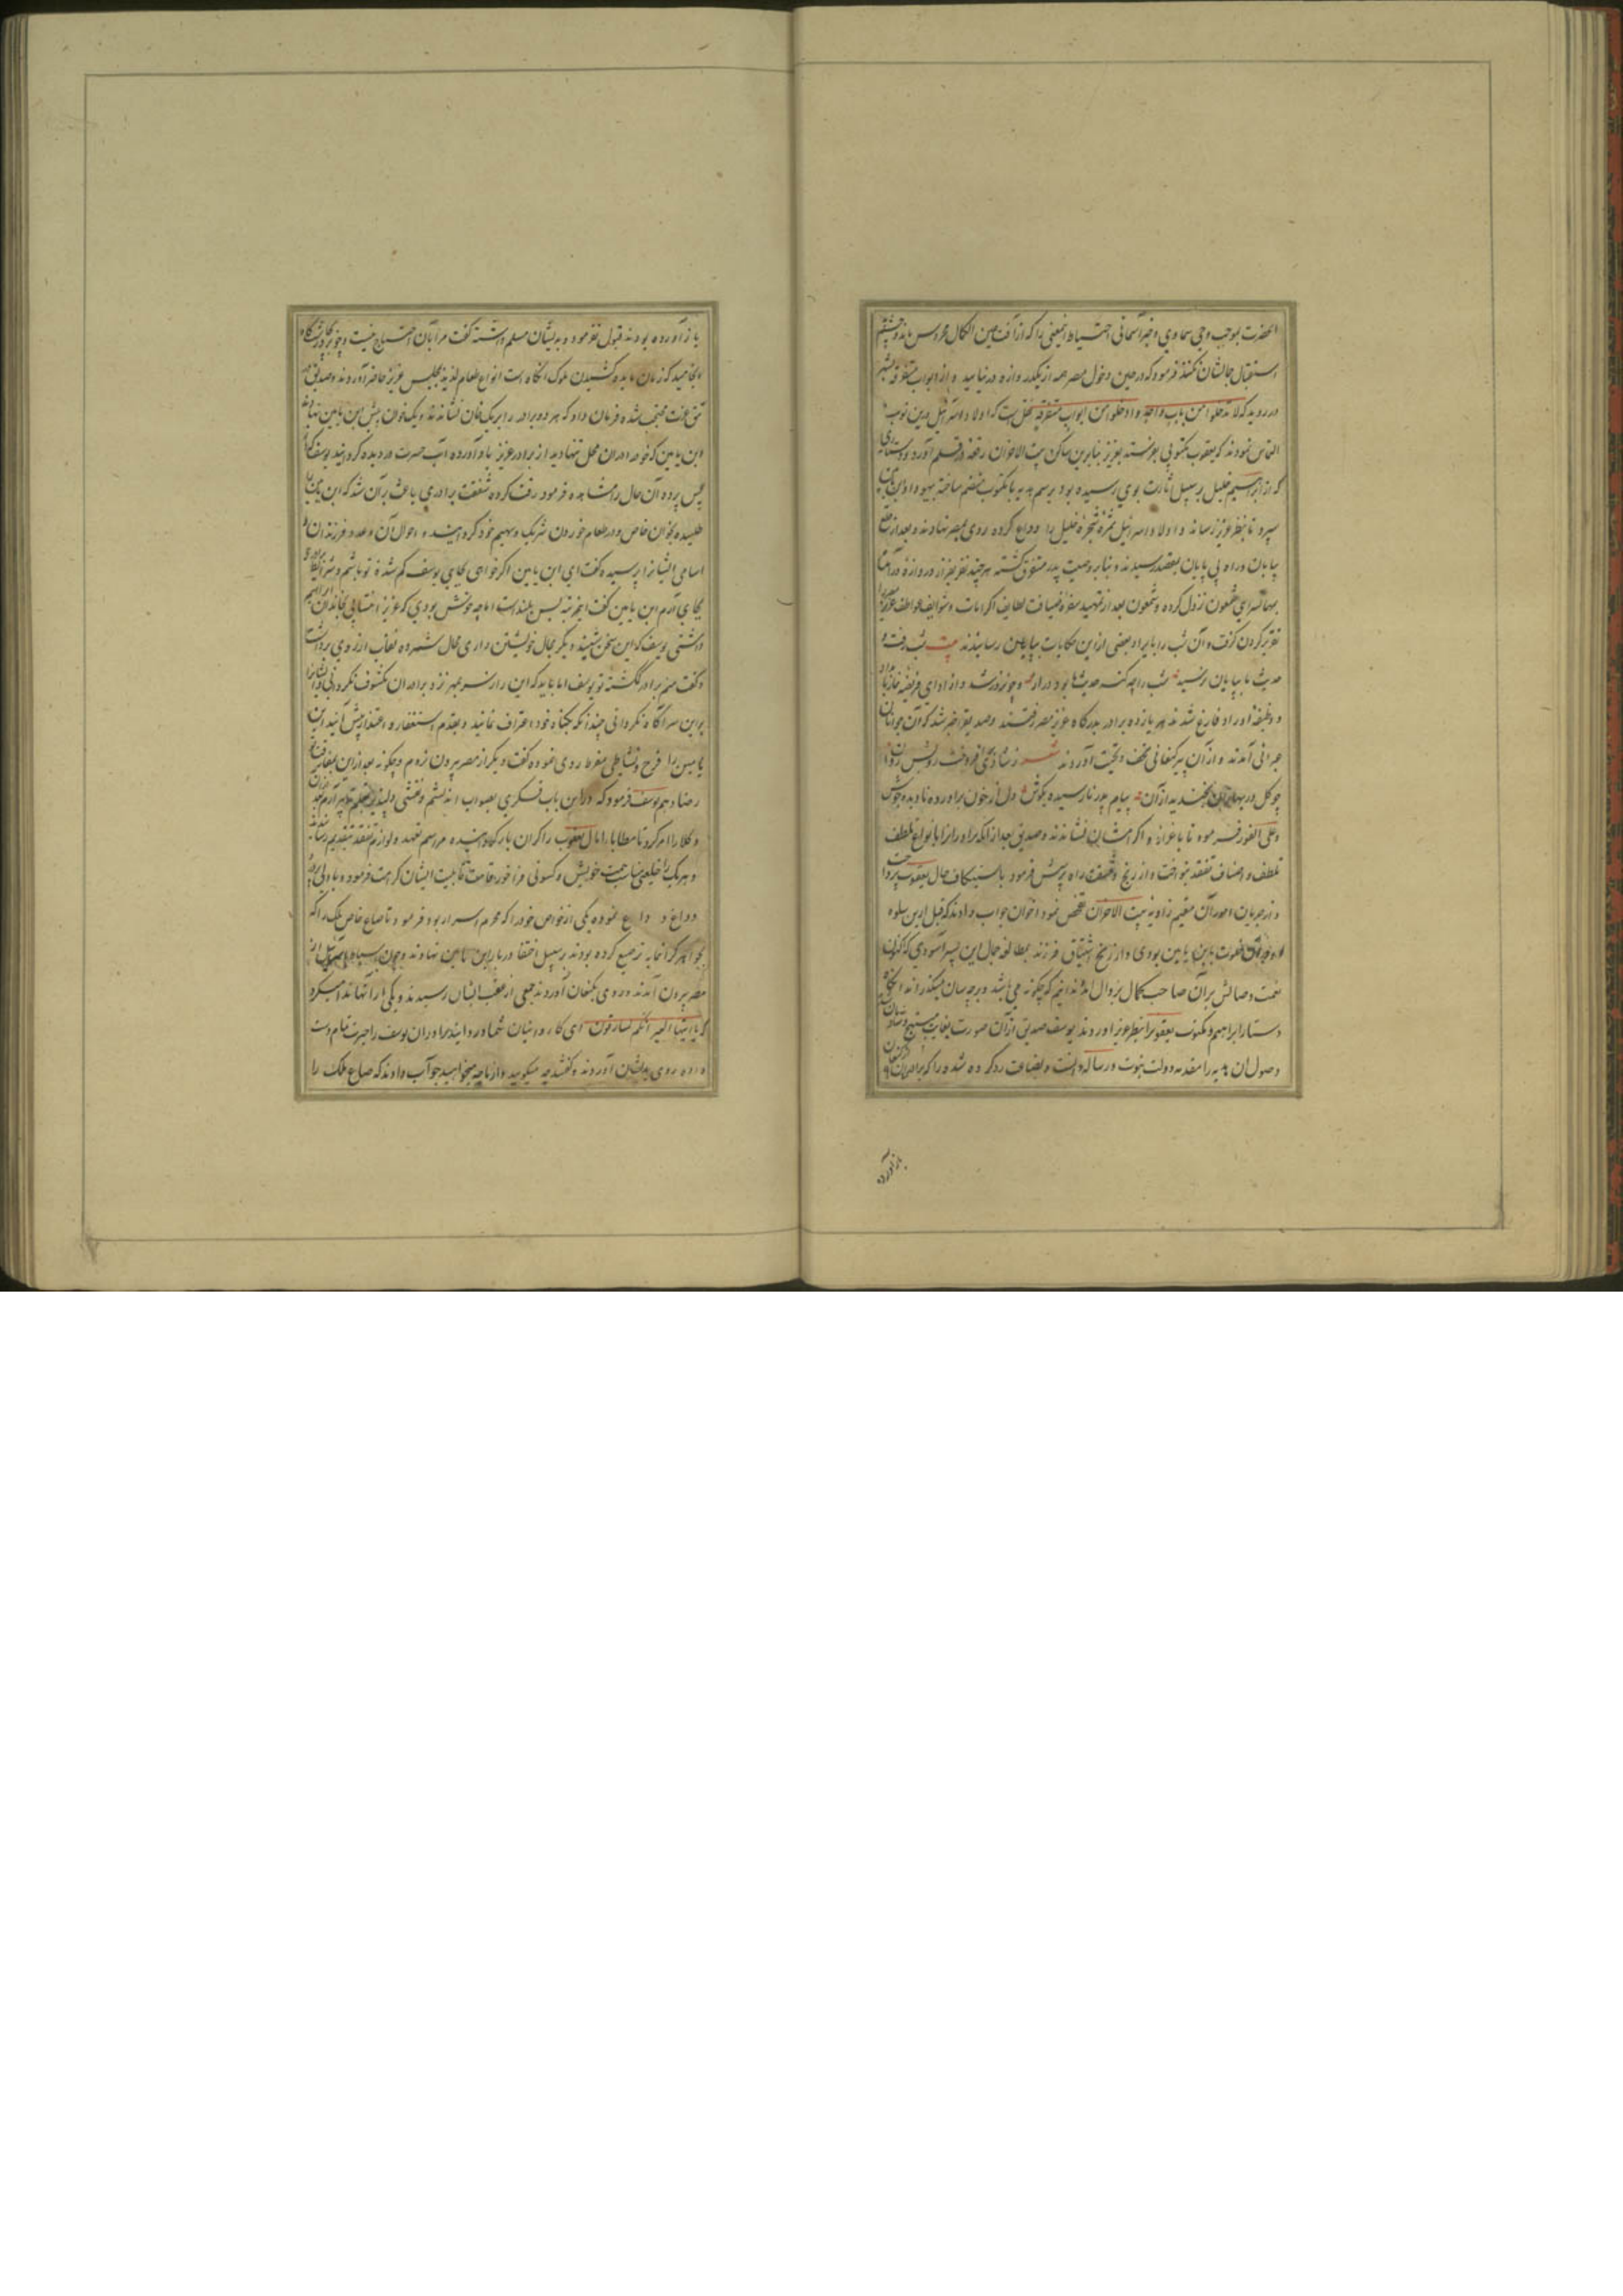 آنحضرت بموجب وحی سماوی و خبر آسمانی احتیاط این معنی را که از آفت عین الکمال محروس مانند و چشم
استقبال جمال ایشان نکند فرمود که در حین دخول مصر همه از یک دروازه در نیایید و از ابواب متفرقه بشهر
در روید که لا تدخلوا من باب واحد و ادخلوا من ابواب متفرقة اولاد اسرائیل درین نوبت
التماس نمودند که یعقوب مکتوبی بعزیز بنابرین ساکن بیت الاحزان رقعه در قلم آورد و دستاری
که از ابراهیم خلیل بر سبیل ارث بوی رسیده بود برسم هدیه با مکتوب منضم ساخته بیهودا و ابن یامین
سپرد تا بنظر عزیز رساند و اولاد اسرائیل ثمره شجره خلیل را وداع کرده روی بمصر نهادند و بعد از قطع
بیابان و راه بی پایان بمقصد رسیدند و بنابر وصیت پدر متفرق گشته هر چند نفر از دروازه در آمدند
بمهمانسرای شمعون نزول کرده و شمعون بعد از تمهید سفره ضیافت لطایف اکرامات و شرایف عواطف عزیز را
تقریر کردن گرفت و آن شب را بایراد بعضی ازین حکایات بپایان رسانیدند بیت شب رفت و
حدیث ما بپایان نرسید شب را چه گنه حدیث ما بود دراز و چون روز شد و از ادای فریضه نماز بامداد
و وظیفه اوراد فارغ شدند هر یازده برادر بدرگاه عزیز مصر رفتند و صدیق را خبر شد که آن جوانان
عبرانی آمدند و از آن پیر کنعانی تحف و تحیت آوردند شعر ز شادی برافروخت رویش روان
چو گل در بهاران بخندید از آن پیام پدر نارسیده بگوش دل از خون برادر نادیده بجوش
و علی الفور فرموده تا باعزاز و اکرام ایشان را بنشاندند و صدیق بعد از آنکه برادران را بانواع تلطف
تلطف و اصناف تفقد بنواخت و از رنج و مشقت راه پرسش فرمود باستکشاف حال یعقوب پرداخت
و از جریان امور آن مقیم زاویه بیت الاحزان تفحص نمود اخوان جواب دادند که قبل ازین سلوه
خلوت بابن یامین بودی و از رنج اشتیاق فرزند بمطالعه جمال این پسر آسودی که اکنون
نعمت وصالش بر آن صاحب کمال بزوال ندانیم که چگونه می باشد و بر چه سان میگذراند آنگاه
دستار ابراهیم و مکتوب یعقوب را بنظر عزیز آوردند یوسف صدیق از آن صورت بغایت مبتهج و شادمان
وصول آن هدیه را مقدمه دولت نبوت و رسالت دانست و بضاعت رد کرده شده را که برادران از کنعان
باز آورده
باز آورده بودند قبول نفرمود و بدیشان مسلم داشته گفت مرا بآن احتیاج نیست و چون
انجامید که زمان مایده کشیدن ملوک آنگاه است انواع طعام لذیذ بمجلس عزیز حاضر آوردند و صدیق
تتق عزت محتجب شده فرمان داد که هر دو برادر را بر یک خوان نشاندند و یک خوان پیش ابن یامین تنها
ابن یامین که خود را در آن محل تنها دید از برادر عزیز یاد آورده آب حسرت در دیده گردانید یوسف که از
پس پرده آن حال را مشاهده فرمود رقت کرده شفقت برادری باعث بر آن شد که ابن یامین را
طلبیده بخوان خاص و در طعام خوردن شریک و سهیم خود گردانید و احوال آن و عدد فرزندان و
اسامی ایشان را پرسیده گفت ای ابن یامین اگر خواهی بجای یوسف گم شده تو باشم
بجای آرم ابن یامین گفت این مرتبه بس بلند است اما چه خوش بودی که عزیز انتسابی بخاندان ابراهیم
داشتی یوسف که این سخن شنید دیگر مجال خویشتن داری محال شمرده نقاب از روی برداشت
و گفت منم برادر گمگشته تو یوسف اما باید که این راز سر بمهر نزد برادران مکشوف نگردانی و ایشان را
برین سر آگاه نگردانی چندانکه بگناه خود اعتراف نمایند و بقدم استغفار و اعتذار پیش آیند ابن
یامین را فرح و نشاطی مفرط روی نموده گفت دیگر از مصر بیرون نروم و چگونه بعد ازین بمفارقت
رضا دهم یوسف فرمود که درین باب فکری بصواب اندیشم و نقشی دلپذیر بقلم تدبیر آرم بعد از آن
وکلا را امر کرد تا مطایا و احمال یعقوب را گران بار گردانیده مراسم تعهد و لوازم تفقد بتقدیم رسانند
و هر یک را خلعتی مناسب خویش و کسوتی فراخور قامت قابلیت ایشان کرامت فرمود و بادلی پر درد
وداع نموده یکی از خواص خود را که محرم اسرار بود فرمود تا صاع خاص ملک را که
بجواهر گرانمایه ترصیع کرده بودند بر سبیل اختفا در بار ابن یامین نهادند و چون اسرائیل از
مصر بیرون آمدند و روی بکنعان آوردند جمعی از عقب ایشان رسیدند و یکی از آنها ندا میکرد
که یا ایتها العیر انکم لسارقون ای کاروانیان شما دزدانید برادران یوسف را حیرت تمام دست
داده روی بدیشان آوردند و گفتند چه میگویید و از ما چه میخواهید جواب دادند که صاع ملک را